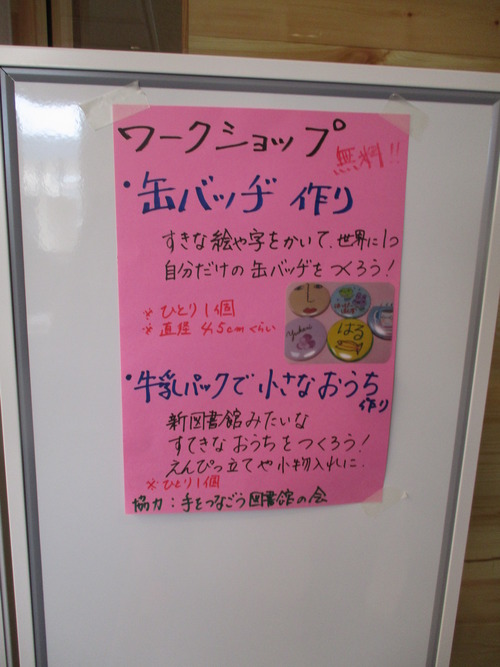 ワークショップ
無料!!
・缶バッヂ 作り
すきな絵や字をかいて、世界に1つ
自分だけの缶バッヂをつくろう!
※ひとり1個
※直径4.5cmくらい
はる
・牛乳パックで小さなおうち
作り
新図書館みたいな
すてきなおうちをつくろう!
えんぴつ立てや小物入れに.
※ひとり1個
協力:手をつなごう図書館の会